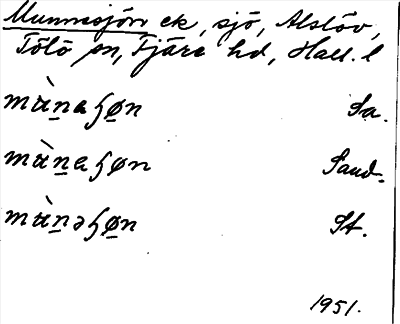 Munnesjön ek, sjö, Alslöv,
Tölö sn, Fjäre hd, Hall. l
mùnaɧøn Sa.
mùnaɧøn Sand.
mùnəɧøn St.
1951.